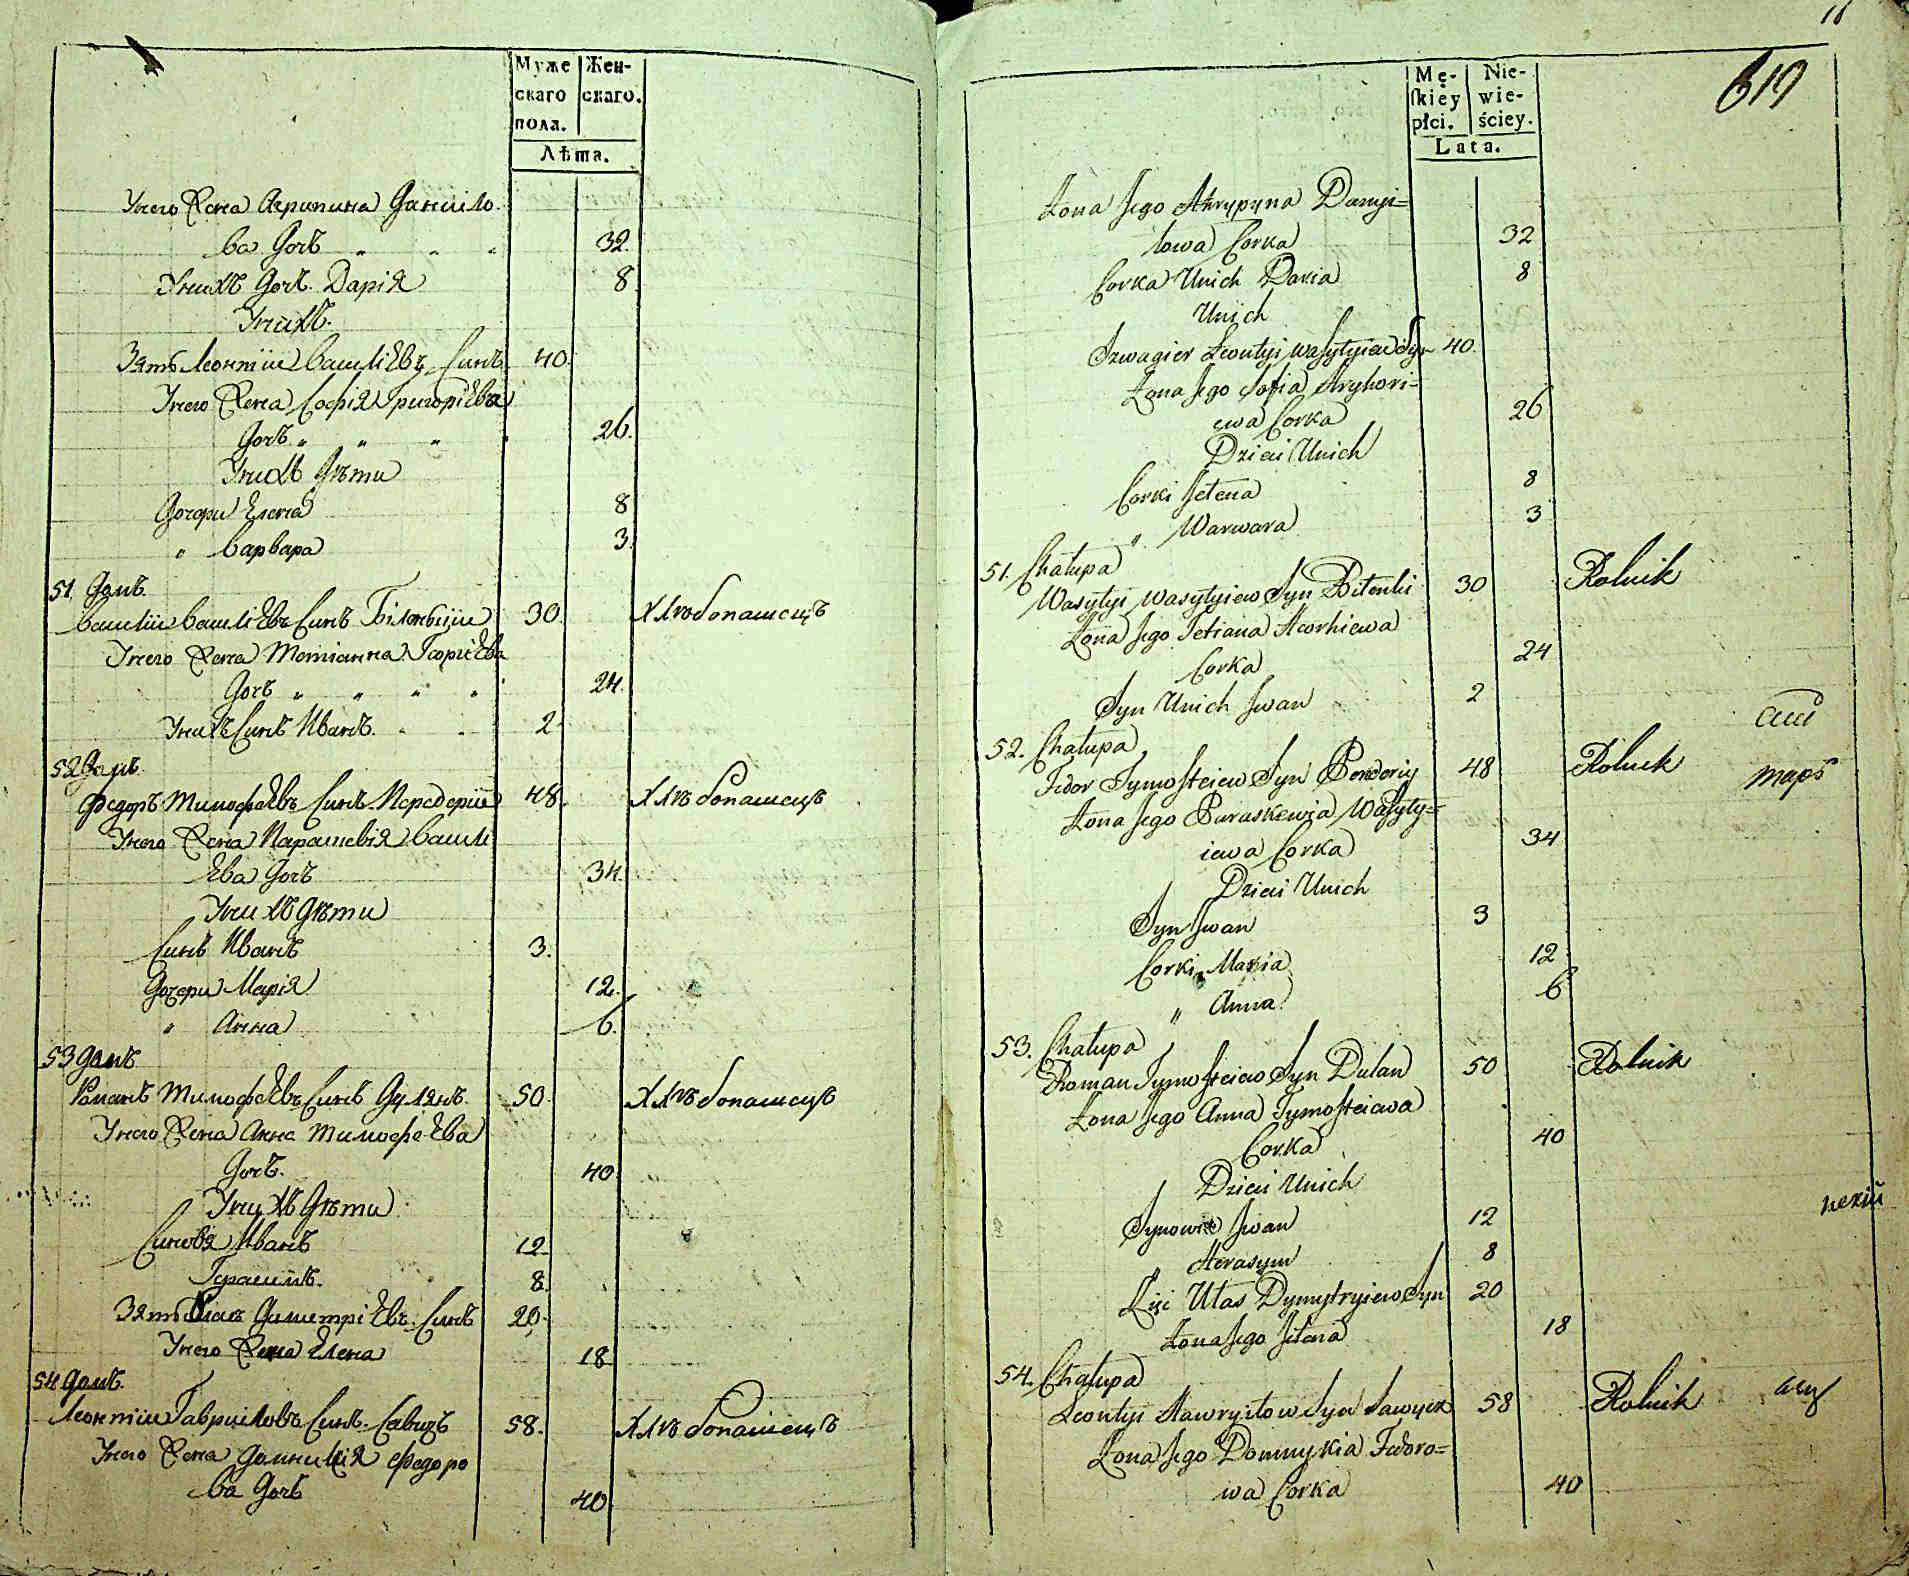 Муже скаго пола.
Жен- скаго.
Лѣта.
Унего Жена Агрипина Данило
ва Дочь " " " 32.
Унихъ Дочь Дарія 8
Унихъ.
Зять Леонтіи Василіевъ Синъ 40.
Унего Жена Софія Григоріева
Дочь " " " 26.
Унихъ Дѣти
Дочери Елена 8
" Варвара 3.
51. Домъ
Василіи Василіевъ Синъ 30. Хлѣбопашецъ
Унего Жена Тетіанна Георгіева
Дочь " " " " 24.
Унихъ Синъ Иванъ. 2
52 Домъ.
Федоръ Тимофѣевъ Синъ 48. Хлѣбопашецъ
Унего Жена Парашевія Васил
ѣва Дочь 34.
Унихъ Дѣти
Синъ Иванъ 3.
Дочери Марія 12.
" Анна 6.
53 Домъ
Романъ Тимофѣевъ Синъ Дулянъ. 50. Хлѣбопашецъ
Унего Жена Анна Тимофеѣва
Дочь. 40
Унихъ Дѣти
Синовя Иванъ 12.
Герасимъ. 8.
Зять Власъ Димитріевъ Синъ 20.
Унего Жена Елена 18
54 Домъ.
Леонтіи Гавриловъ Синъ Савицъ 58. Хлѣбопашецъ
Унего Жена Домникія Федоро
ва Дочь 40
11
619
Mę- skiéy płci.
Nie- wie- ściey.
Lata.
Żona Jego Ahrypyna Danyi=
łowa Corka 32
Corka Unich Daria 8
Unich
Szwagier Leontyi Wasylyiew Syn 40.
Żona Jego Sofia Hryhori=
ewa Corka 26
Dzieci Unich
Corki Jelena 8
" Warwara 3
51. Chałupa
Wasylyi Wasylyiew Syn 30 Rolnik
Żona Jego Tetiana Heorhiewa
Corka 24
Syn Unich Iwan 2
52. Chałupa
Fedor Tymofteiew Syn 48 Rolnik
Żona Jego Paraskewia Wasyly=
iewa Corka 34
Dzieci Unich
Syn Iwan 3
Corki Maria 12
" Anna 6
53. Chałupa
Roman Tymofteiew Syn Dulan 50 Rolnik
Żona Jego Anna Tymofteiewa
Corka 40
Dzieci Unich
Synowie Iwan 12
Herasym 8
Ułas Dymytryiew Syn 20
Żona Jego Jelena 18
54. Chałupa
Leontyi Hawryłow Syn Sawycz 58 Rolnik
Żona Jego Domnykia Fedoro=
wa Corka 40